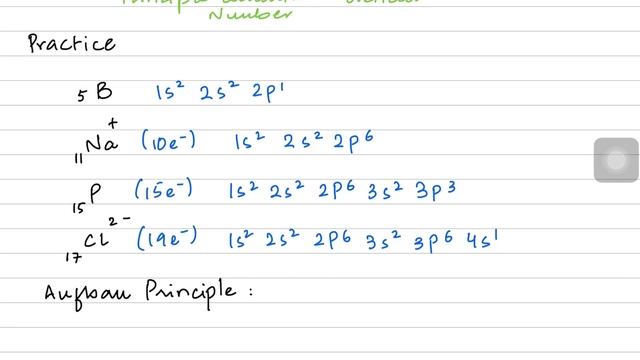 Number
Practice
₅B 1s² 2s² 2p¹
₁₁Na⁺ (10e⁻) 1s² 2s² 2p⁶
₁₅P (15e⁻) 1s² 2s² 2p⁶ 3s² 3p³
₁₇Cl²⁻ (19e⁻) 1s² 2s² 2p⁶ 3s² 3p⁶ 4s¹
Aufbau Principle :